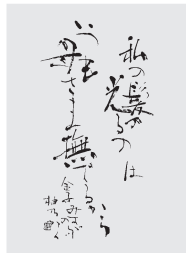 私の髪の
光るの は
いつも
母さま
撫でるから
金子みすゞ